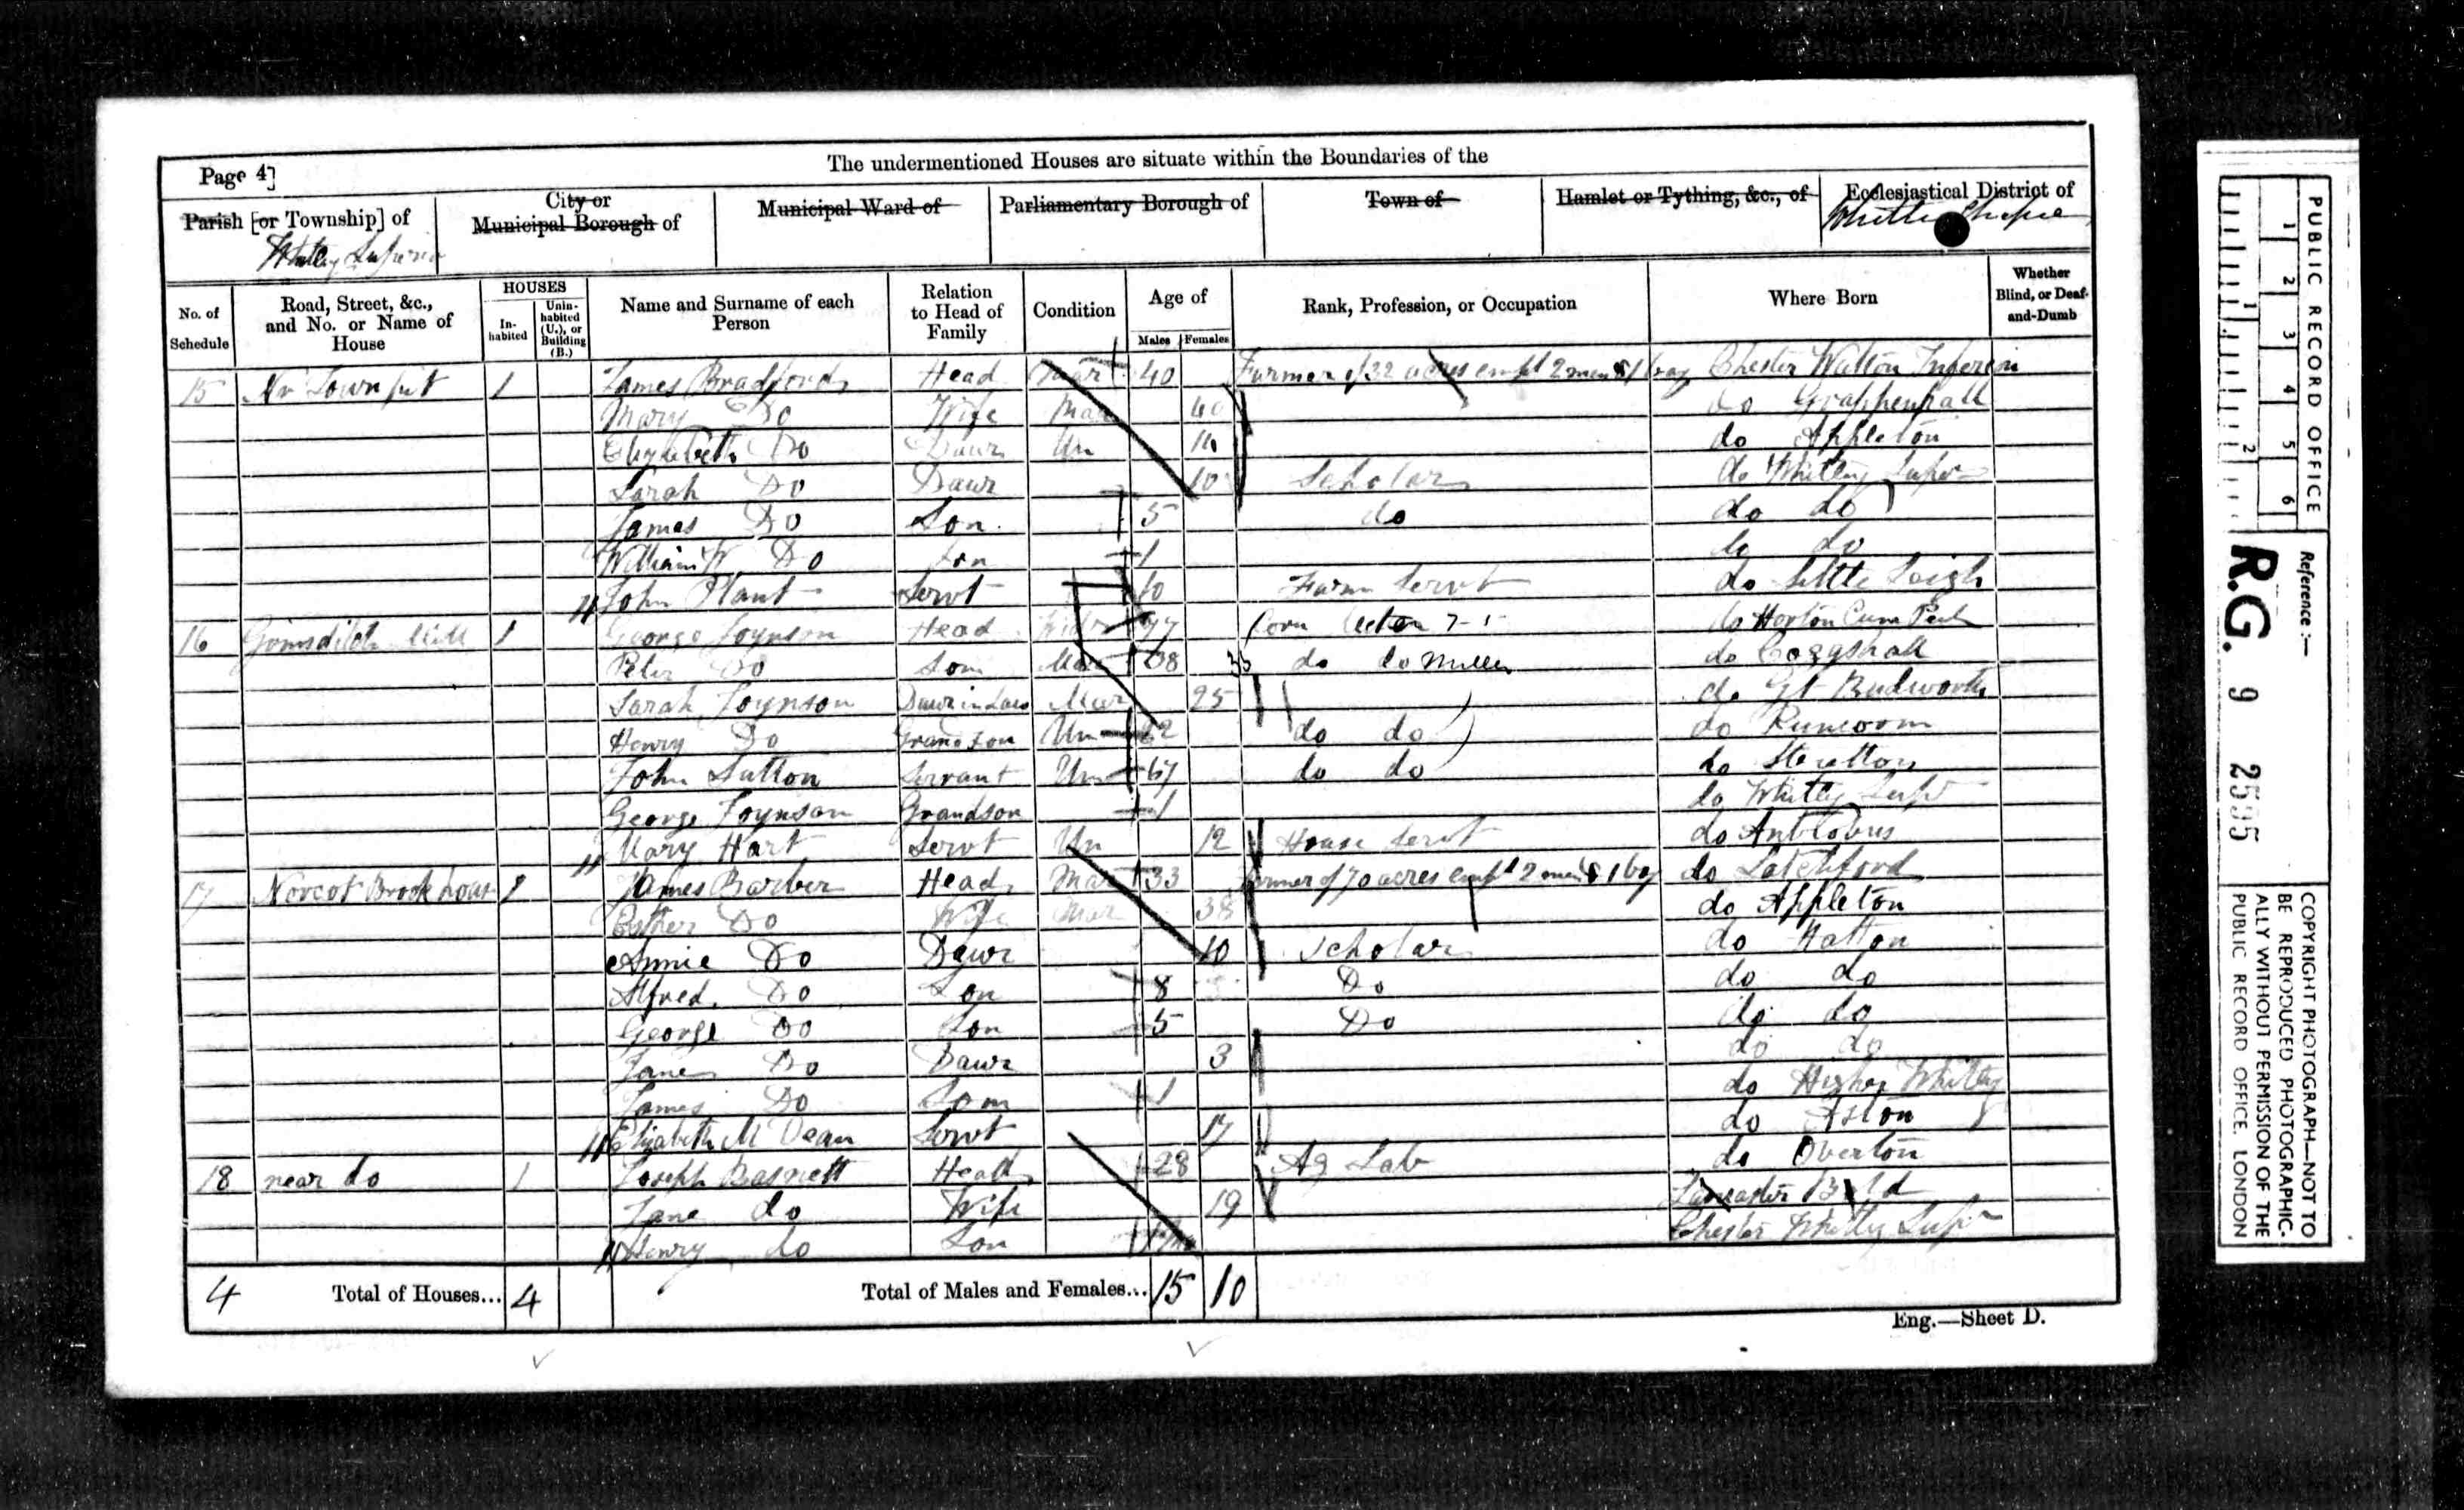 The undermentioned Houses are situate within the Boundaries of the
Page 4]
Parish [or Township] of
City or Municipal Borough of
Municipal Ward of
Parliamentary Borough of
Town of
Hamlet or Tything, &c., of
Ecclesiastical District of
Whitley
No. of Schedule
Road, Street, &c., and No. or Name of House
HOUSES
Inhabited
Uninhabited (U.), or Building (B.)
Name and Surname of each Person
Relation to Head of Family
Condition
Age of
Males
Females
Rank, Profession, or Occupation
Where Born
Whether Blind, or Deaf-and-Dumb
15 Nr Town pit 1 James Bradford Head Mar 40 Farmer of 32 acres empl 2 men & 1 boy Chester
Mary Do Wife Mar 40 do Grappenhall
Elizabeth Do Dawr Un do Appleton
Sarah Do Dawr 10 Scholar do Whitley Supr
James Do Son 5 do do do
William W. Do Son 1 do do
John Plant Servt Farm Servt do Little Leigh
16 Grimsditch Mill 1 George Joynson Head Widr 77 Corn do
Peter Do Son Mar 38 do do Miller do Cogshall
Sarah Joynson Dawr in Law Mar 25 do Gt Budworth
Henry Do Grandson Un 22 do do do Runcorn
John Sutton Servant Un 67 do do do Stretton
George Joynson Grandson 1 do Whitley Supr
Mary Hart Servt Un 12 House Servt do Antrobus
17 Norcot Brook house 1 James Barber Head Mar 33 Farmer of 70 acres empl 2 men & 1 boy do Latchford
Esther Do Wife Mar 38 do Appleton
Annie Do Dawr 10 Scholar do Hatton
Alfred Do Son 8 Do do do
George Do Son 5 Do do do
Jane Do Dawr 3 do do
James Do Son 1 do Higher Whitley
Elizabeth M Dean Servt 17 do Aston
18 near do 1 Joseph Basnett Head 28 Ag Lab do Overton
Jane do Wife 19 Lancaster
Henry do Son Chester Whitley Supr
4 Total of Houses... 4
Total of Males and Females... 15 10
Eng.—Sheet D.
PUBLIC RECORD OFFICE
1 2 3 4 5 6
1 2
Reference :—
R.G. 9 2595
COPYRIGHT PHOTOGRAPH—NOT TO
BE REPRODUCED PHOTOGRAPHIC-
ALLY WITHOUT PERMISSION OF THE
PUBLIC RECORD OFFICE, LONDON